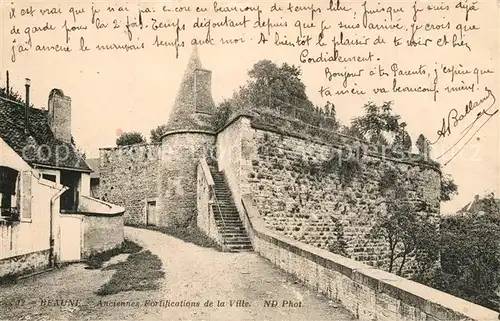 c'est vrai que j'ai encore eu beaucoup de temps libre, puisque je suis déjà
de garde pour la 2e fois. Temps dégoutant depuis que je suis arrivé, je crois que
j'ai amené le mauvais temps avec moi. A bientôt le plaisir de te voir et reçois
Cordialement.
Bonjour à tes Parents, j'espère que
ta mère va beaucoup mieux.
A. Ballany
12 - BEAUNE - Anciennes Fortifications de la Ville. ND Phot.